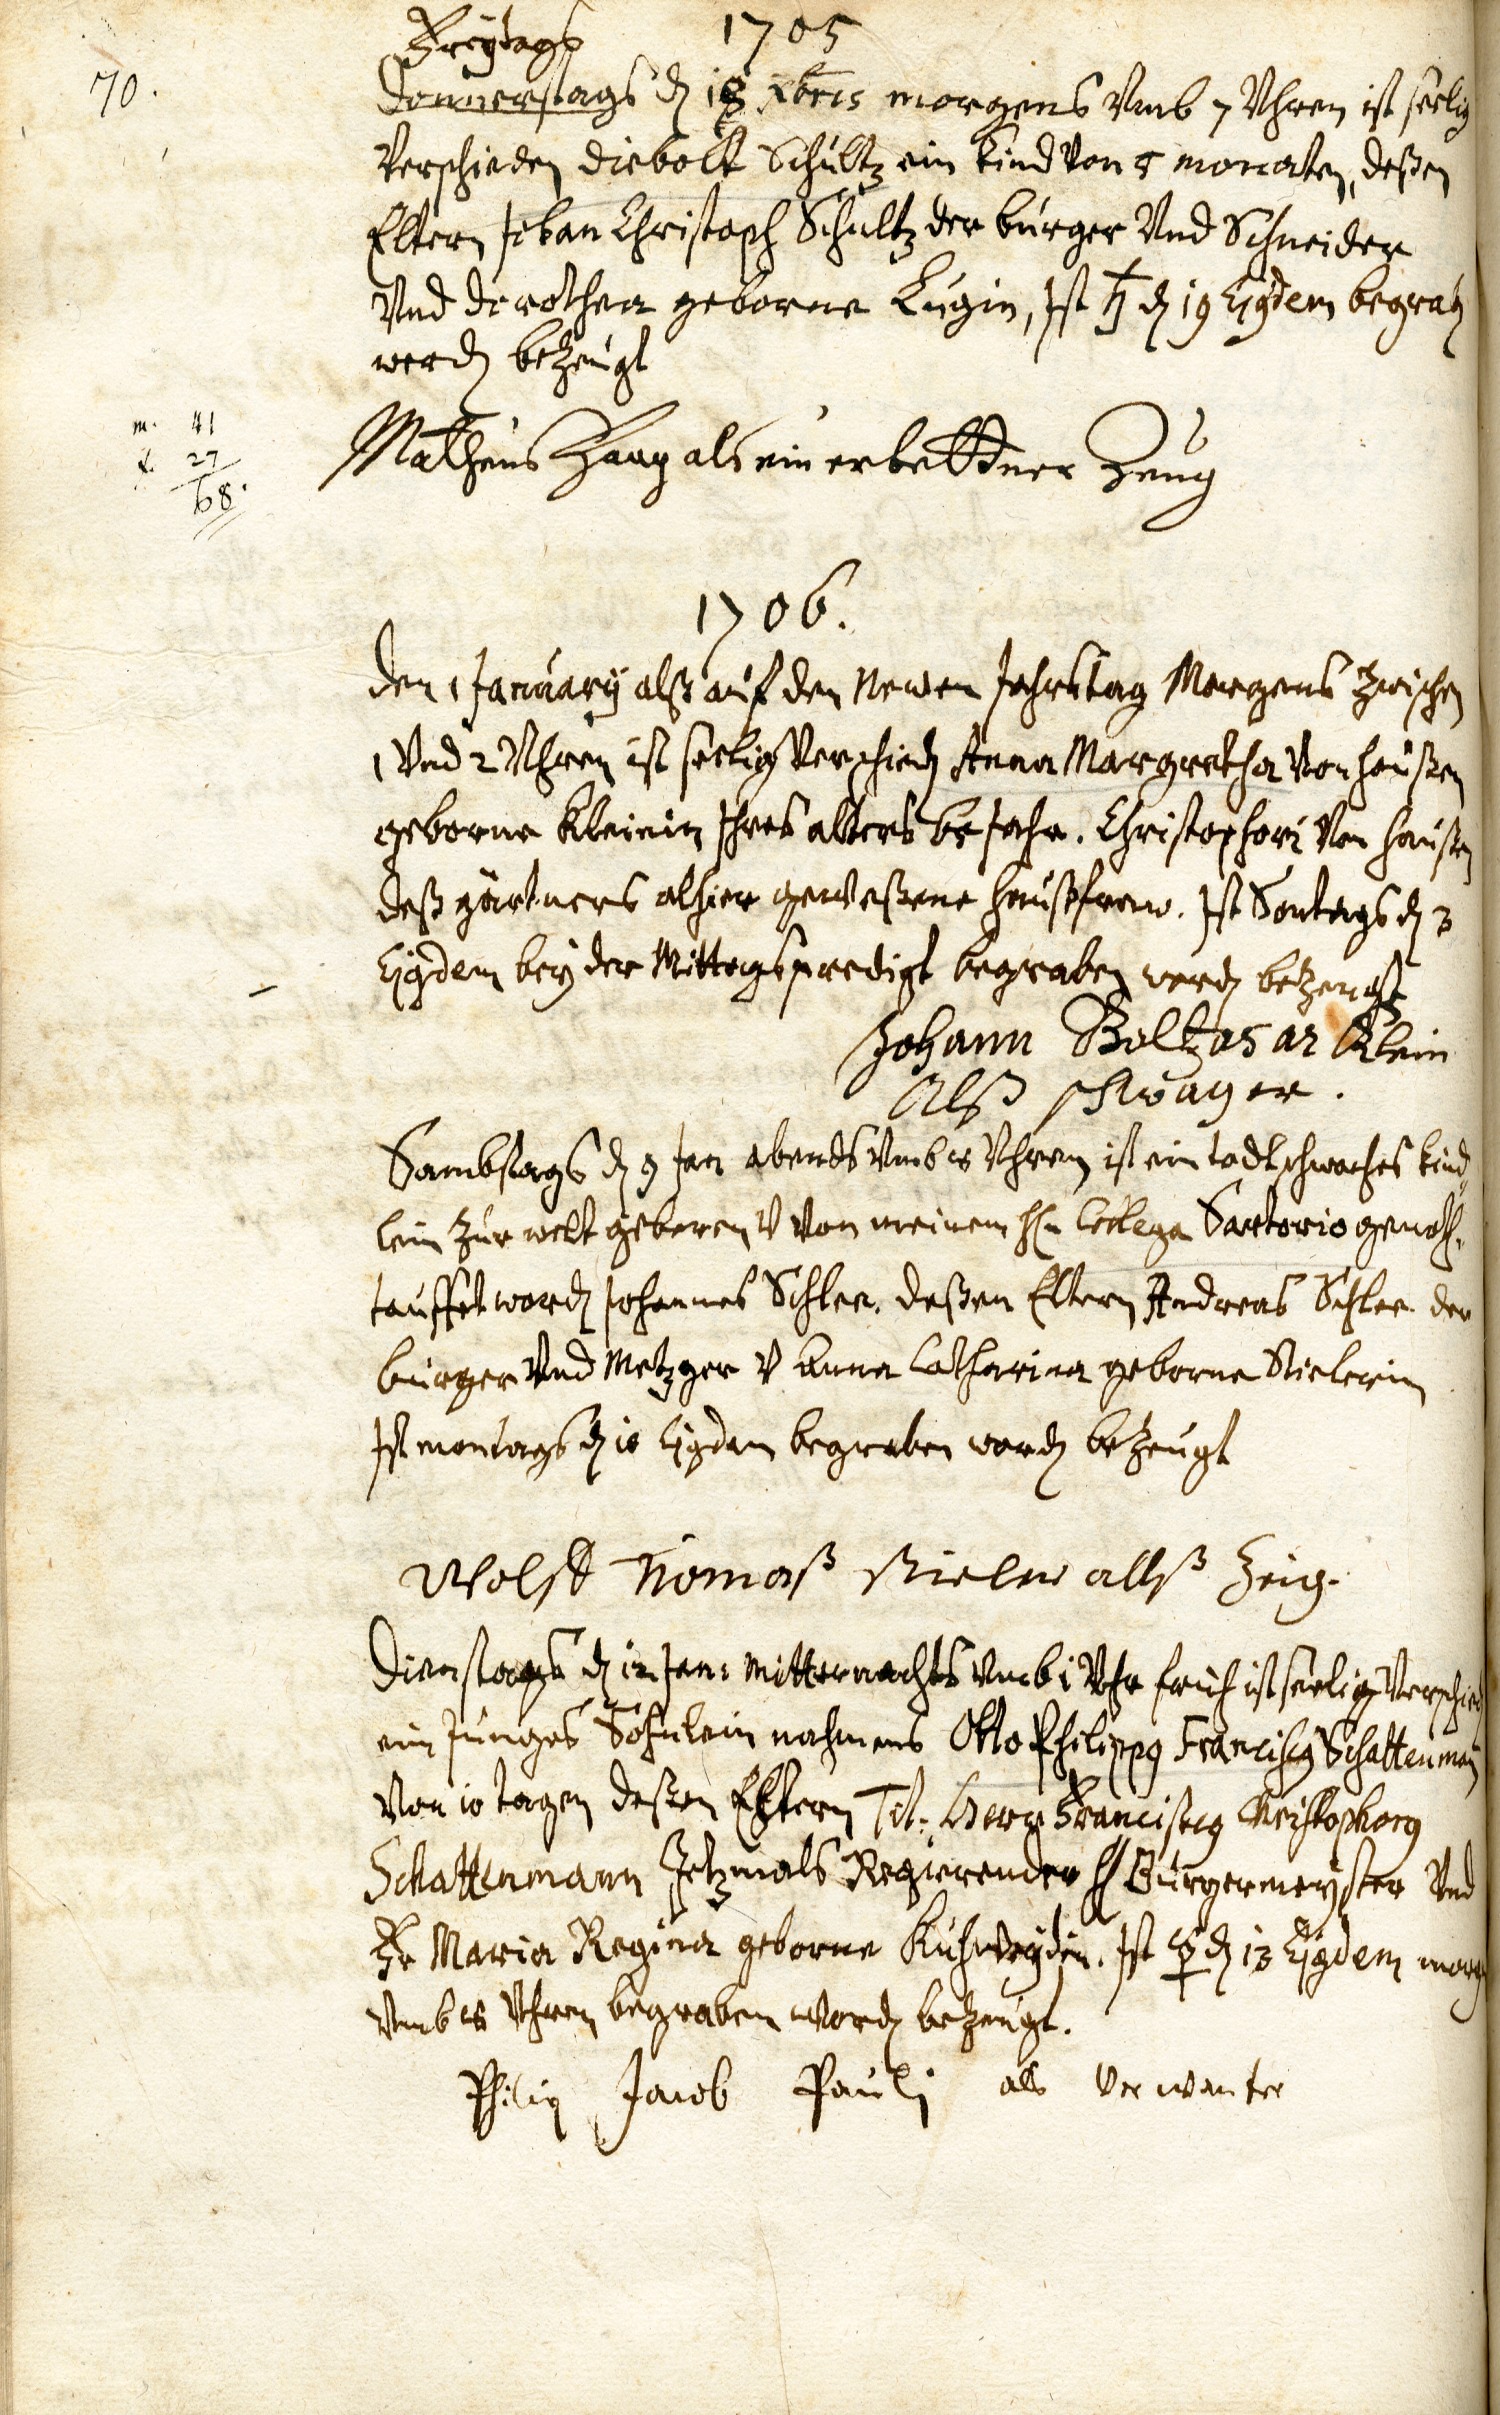 1705
70.
Freytags
Donnerstags d 18 Xbris morgens Vmb 7 Vhren ist seelig
Verschieden Diebolt Schultz ein Kind von 5 monaten, deßen
Eltern Johan Christoph Schultz der burger Vnd Schneider
Vnd Dorothea geborne Lugin, Ist ♄ d 19 Ejusdem begrab
word bezeugt
m. 41
f. 27
68.
Matheus Haag als ein erbettner Zeug
1706.
Den 1 January alß auf den Newen Jahrstag Morgens zwischen
1 Vnd 2 Vhren ist seelig Verschied Anna Margretha Von Haußen
geborne Kleinin Ihres alters Jahr. Christophori Von Haußen
deß gärtners alhier geweßene haußfraw. Ist Sontags d 3
Ejusdem bey der Mittagspredigt begraben word bezeugt
Johann Baltzasar Klein
Alß schwager.
Sambstags d 9 Jan abends Vmb Vhren ist ein todtschwaches Kind
lein zur welt geboren V von meinem H Collega Sartorio genoth
tauffet word Johannes Schlee. deßen Eltern Andreas Schlee der
burger Vnd Metzger V Anna Catharina geborne Stielerin
Ist montags d 10 Ejusdem begraben word bezeugt
Wolff Tomaß Stieler allß Zeig.
Dienstags d 12 Jan: Mitternachts Vmb 1 Vhr früh ist seelig Verschied
ein Junges Söhnlein nahmens Otto Philipp Francisc Schattenman
Von 10 tagen deßen Eltern Tit. Herr Francisc Christophor
Schattenmann Jetzmals Regierender H Burgermeyster Vnd
Fr Maria Regina geborne Kuhweydin. Ist d 13 Ejusdem morg
Vmb Vhren begraben word bezeugt.
Philip Jacob Pauli als Verwanter